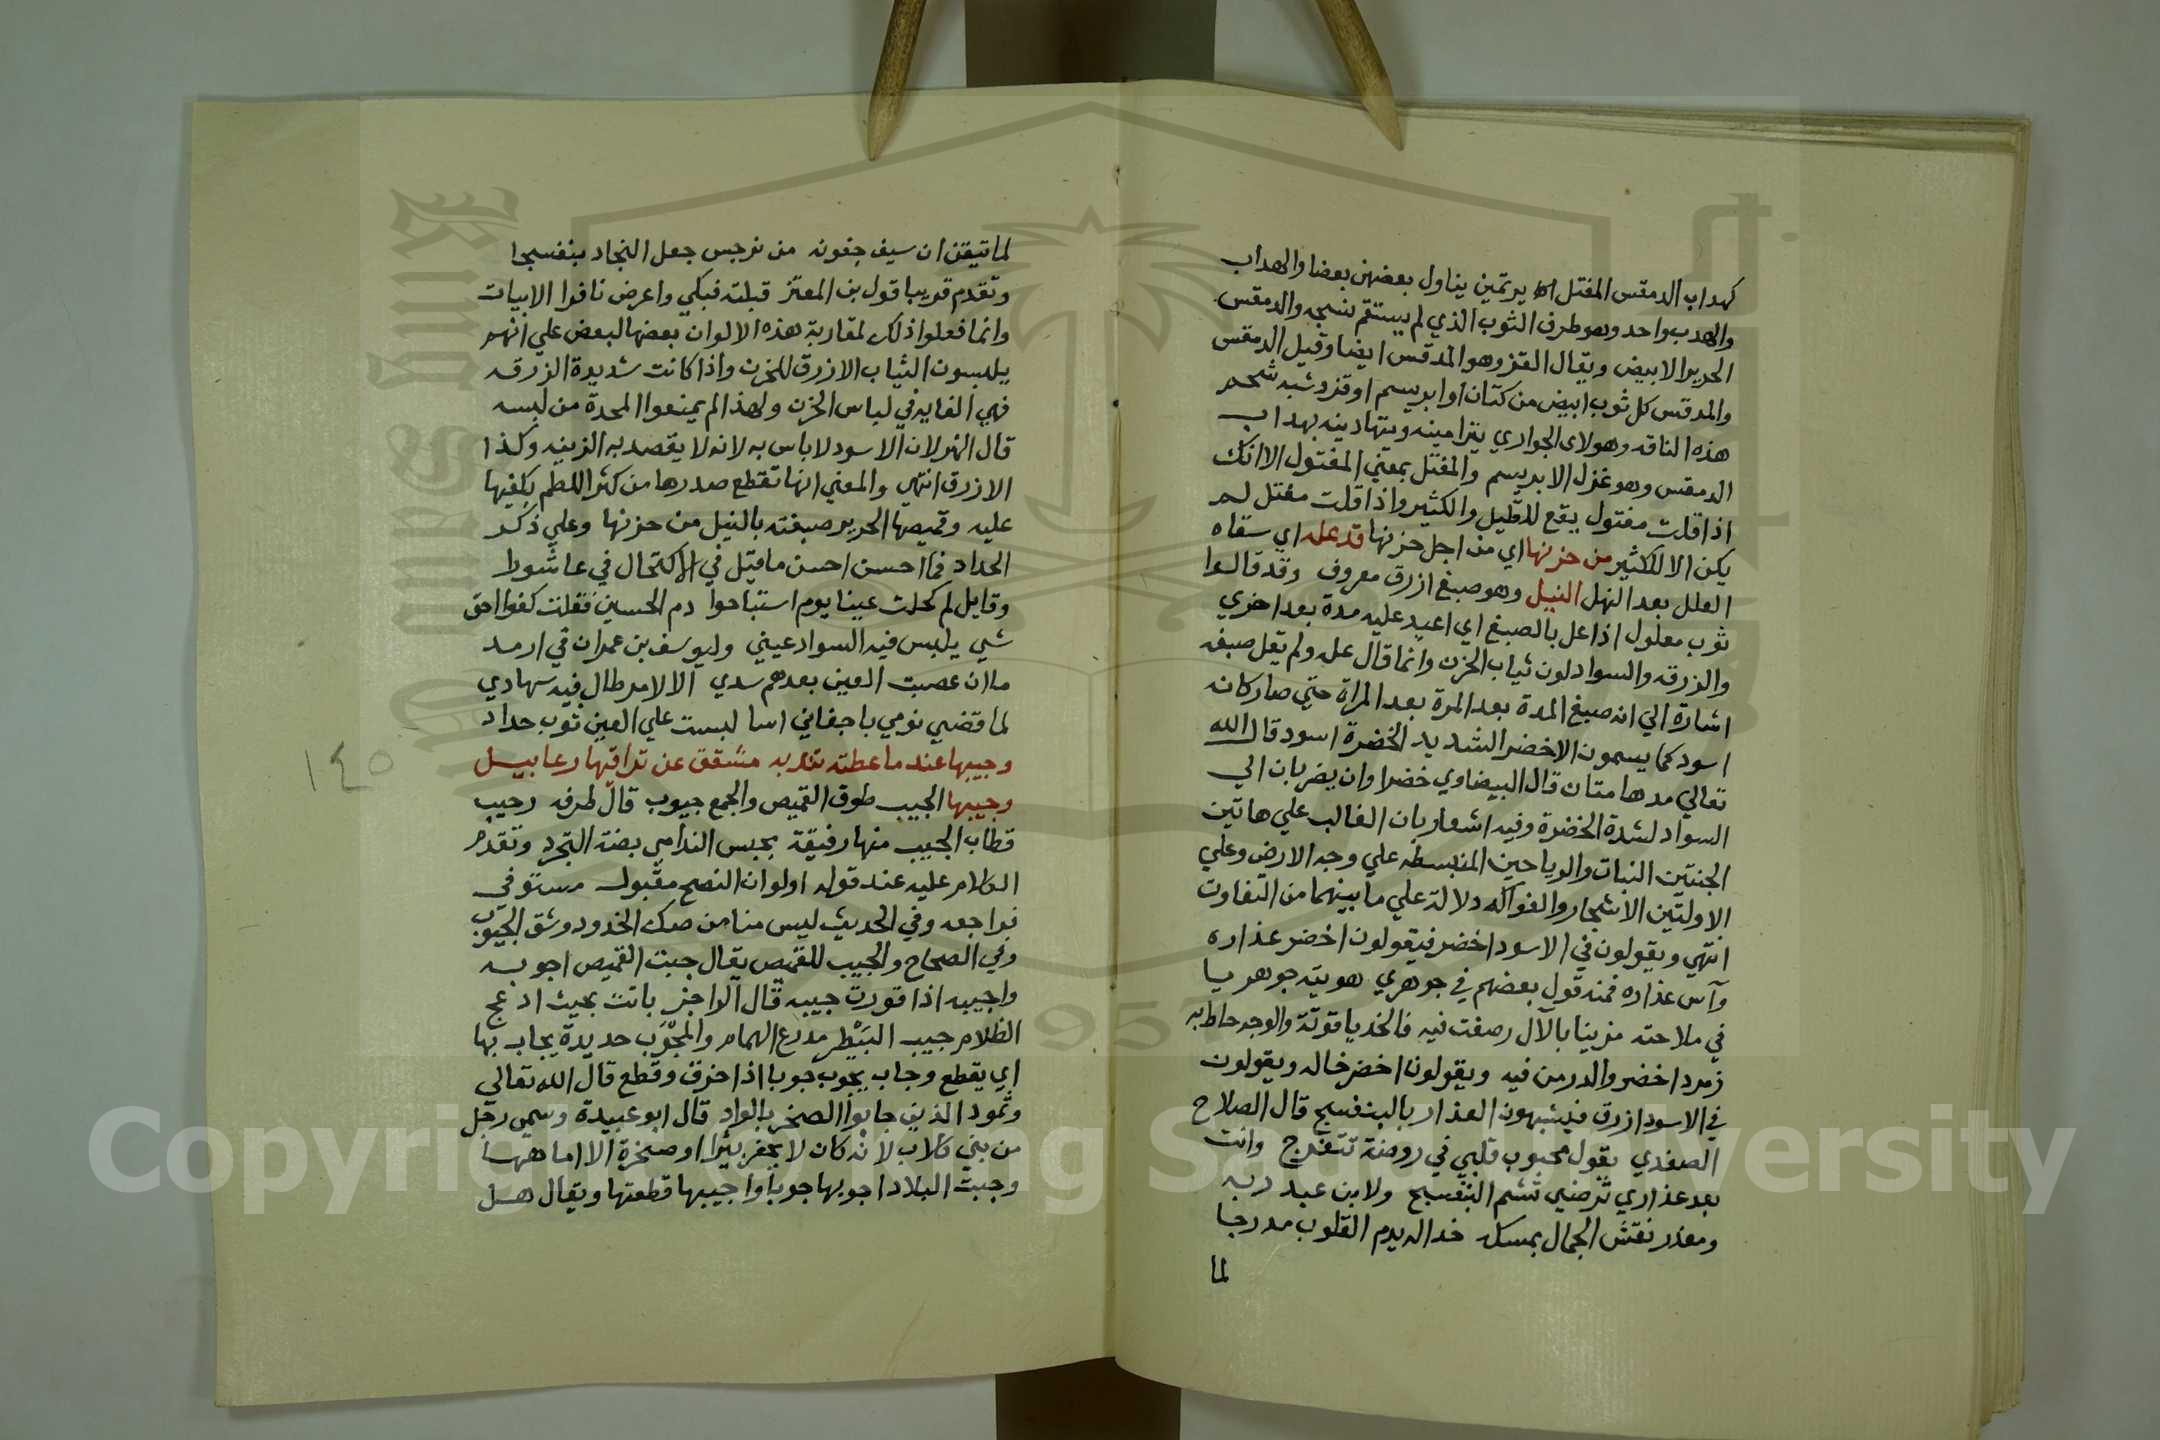 كهداب الدمقس المفتل اي يرتمين يناول بعضهن بعضا والهداب
والهدب واحد وهو طرف الثوب الذي لم يستتم نسجه والدمقس
الحرير الابيض ويقال القز وهو المدقس ايضا وقيل الدمقس
والمدقس كل ثوب ابيض من كتان او ابريسم او قز وشبه شحم
هذه الناقه وهولاى الجواري يترامينه ويتهادينه بهداب
الدمقس وهو غزل الابريسم والمفتل بمعني المفتول الا انك
اذا قلت مفتول يقع للقليل والكثير واذا قلت مفتل لم
يكن الا للكثير من حزنها اي من اجل حزنها قد عله اي سقاه
العلل بعد النهل النيل وهو صبغ ازرق معروف وقد قالوا
ثوب معلول اذا عل بالصبغ اي اعيد عليه مدة بعد اخري
والزرقه والسواد لون ثياب الحزن وانما قال عله ولم يقل صبغه
اشارة الي انه صبغ المدة بعد المرة بعد المراة حتي صار كانه
اسود كما يسمون الاخضر الشديد الخضرة اسود قال الله
تعالي مدهامتان قال البيضاوي خضراوان يضربان الي
السواد لشدة الخضرة وفيه اشعار بان الغالب علي هاتين
الجنتين النبات والرياحين المنبسطه علي وجه الارض وعلي
الاولتين الاشجار والفواكه دلالة علي ما بينهما من التفاوت
انتهي ويقولون في الاسود اخضر فيقولون اخضر عذاره
وآس عذاره فمنه قول بعضهم في جوهري هويته جوهريا
في ملاحته مزينا بالآل رصفت فيه فالخد ياقوتة والوجه حاط به
زمرد اخضر والدر من فيه ويقولون اخضر خاله ويقولون
في الاسود ازرق فيشبهون العذار بالبنفسج قال الصلاح
الصفدي يقول محبوب قلبي في روضة تتفرج وانت
بعد عذاري ترضي تشم البنفسج ولابن عبد ربه
ومعذر نقش الجمال بمسكه خدا له بدم القلوب مدرجا
لما
لما تيقن ان سيف جفونه من نرجس جعل النجاد بنفسجا
وتقدم قريبا قول بن المعتز قبلته فبكي واعرض نافرا الابيات
وانما فعلوا ذلك لمقاربة هذه الالوان بعضها لبعض علي انهم
يلبسون الثياب الازرق للحزن واذا كانت شديدة الزرقه
فهي الغايه في لباس الحزن ولهذا لم يمنعوا المحدة من لبسه
قال الهولان الاسود لاباس به لانه لا يقصد به الزينه وكذا
الازرق انتهي والمعني انها تقطع صدرها من كثر اللطم بكفيها
عليه وقميصها الحرير صبغته بالنيل من حزنها وعلي ذكر
الحداد فما احسن احسن ما قيل في الاكتحال في عاشورا
وقايل لم كحلت عينا يوم استباحوا دم الحسين فقلت كفوا احق
شي يلبس فيه السواد عيني وليوسف بن عمران في ارمد
ما ان عصبت العين بعدهم سدي الا لامر طال فيه سهادي
لما قضي نومي باجفاني اسا لبست علي العين ثوب حداد
وجيبها عند ما عطته تندبه مشقق عن تراقيها رعابيل
وجيبها الجيب طوق القميص والجمع جيوب قال طرفه رحيب
قطاب الجيب منها رفيقة بجس الندامي بضة التجرد وتقدم
الكلام عليه عند قوله اولوان النصح مقبول مستوفي
فراجعه وفي الحديث ليس منا من صك الخدود وشق الجيوب
وفي الصحاح والجيب للقميص يقال جبت القميص اجوبه
واجيبه اذا قورت جيبه قال الراجز باتت بجيث ادعج
الظلام جيب البيطر مدرع الهمام والمجوب حديدة يجاب بها
اي يقطع وجاب يجوب جوبا اذا خرق وقطع قال الله تعالي
وثمود الذين جابوا الصخر بالواد قال ابو عبيدة وسمي رجل
من بني كلاب لانه كان لا يحفر بئرا او صخرة الا اماهها
وجبت البلاد اجوبها جوبا واجيبها قطعتها ويقال هل
١٤٥